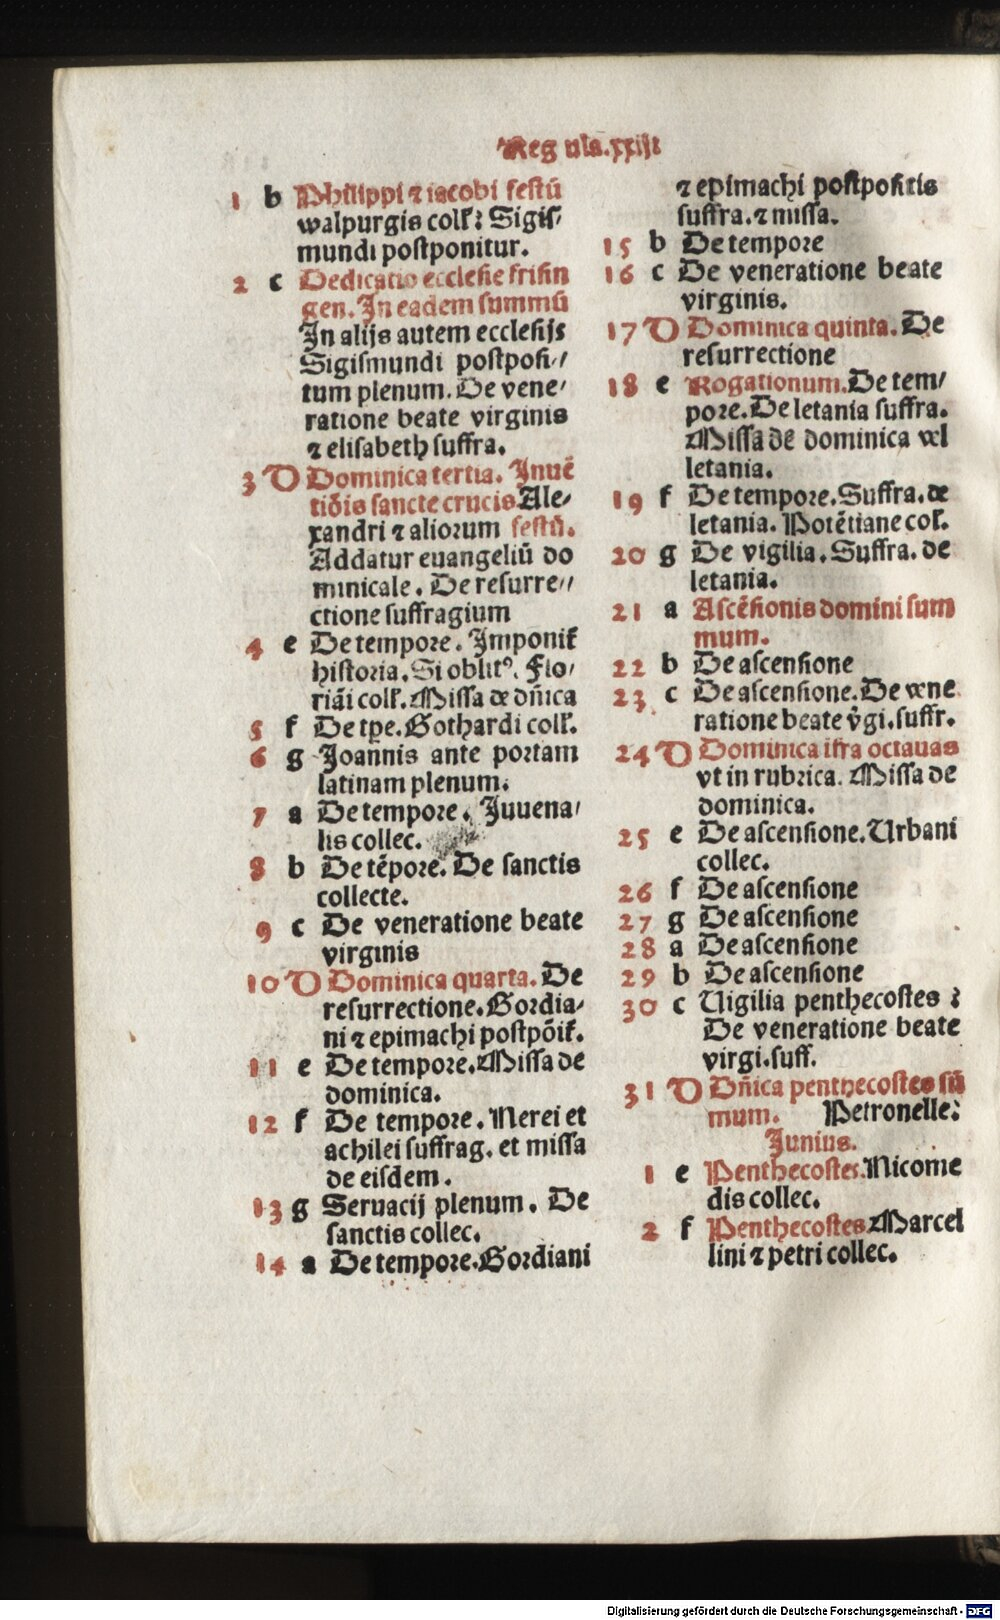 Regula.xxiij
1 b Philippi ⁊ iacobi festū
walpurgis coll̄: Sigis⸗
mundi postponitur.
2 c Dedicatio ecclesie frisin
gen. In eadem summū
In alijs autem ecclesijs
Sigismundi postposi⸗
tum plenum. De vene⸗
ratione beate virginis
⁊ elisabeth suffra.
3 D Dominica tertia. Inuē
tiōis sancte crucis. Ale⸗
xandri ⁊ aliorum festū.
Addatur euangeliū do
minicale. De resurre⸗
ctione suffragium
4 e De tempore. Imponit̄
historia. Si oblitꝰ. Flo⸗
riāi coll̄. Missa de dn̄ica
5 f De tp̄e. Gothardi coll̄.
6 g Joannis ante portam
latinam plenum.
7 a De tempore. Juuena⸗
lis collec.
8 b De tēpore. De sanctis
collecte.
9 c De veneratione beate
virginis
10 D Dominica quarta. De
resurrectione. Gordia⸗
ni ⁊ epimachi postpōit̄.
11 e De tempore. Missa de
dominica.
12 f De tempore. Nerei et
achilei suffrag. et missa
de eisdem.
13 g Seruacij plenum. De
sanctis collec.
14 a De tempore. Gordiani
⁊ epimachi postpositis
suffra. ⁊ missa.
15 b De tempore
16 c De veneratione beate
virginis.
17 D Dominica quinta. De
resurrectione
18 e Rogationum. De tem⸗
pore. De letania suffra.
Missa de dominica vel
letania.
19 f De tempore. Suffra. de
letania. Potētiane col̄.
20 g De vigilia. Suffra. de
letania.
21 a Ascēsionis domini sum
mum.
22 b De ascensione
23 c De ascensione. De vene
ratione beate v̄gi. suffr.
24 D Dominica ifra octauas
vt in rubrica. Missa de
dominica.
25 e De ascensione. Urbani
collec.
26 f De ascensione
27 g De ascensione
28 a De ascensione
29 b De ascensione
30 c Uigilia penthecostes:
De veneratione beate
virgi. suff.
31 D Dn̄ica penthecostes sū
mum. Petronelle:
Junius.
1 e Penthecostes. Nicome
dis collec.
2 f Penthecostes. Marcel
lini ⁊ petri collec.
Digitalisierung gefördert durch die Deutsche Forschungsgemeinschaft - DFG